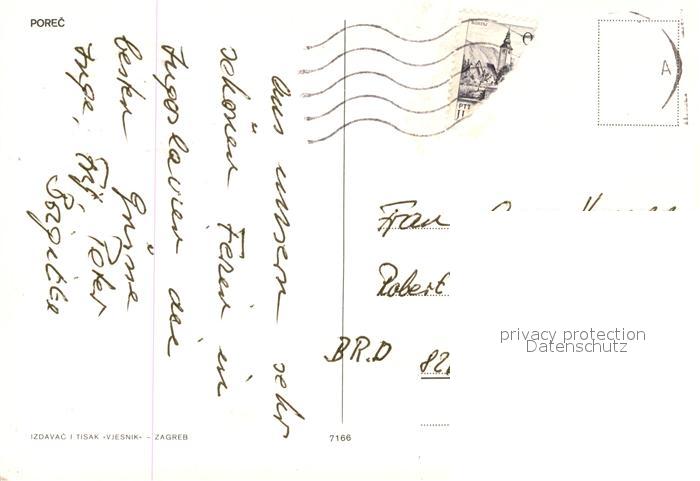 POREČ
Aus unsern sehr
schönen Ferien in
Jugoslavien die
besten Grüsse
Inge, Peter
Brigitte
A
PTT
Frau
Robert
BR.D 82
privacy protection
Datenschutz
IZDAVAČ I TISAK «VJESNIK» – ZAGREB
7166